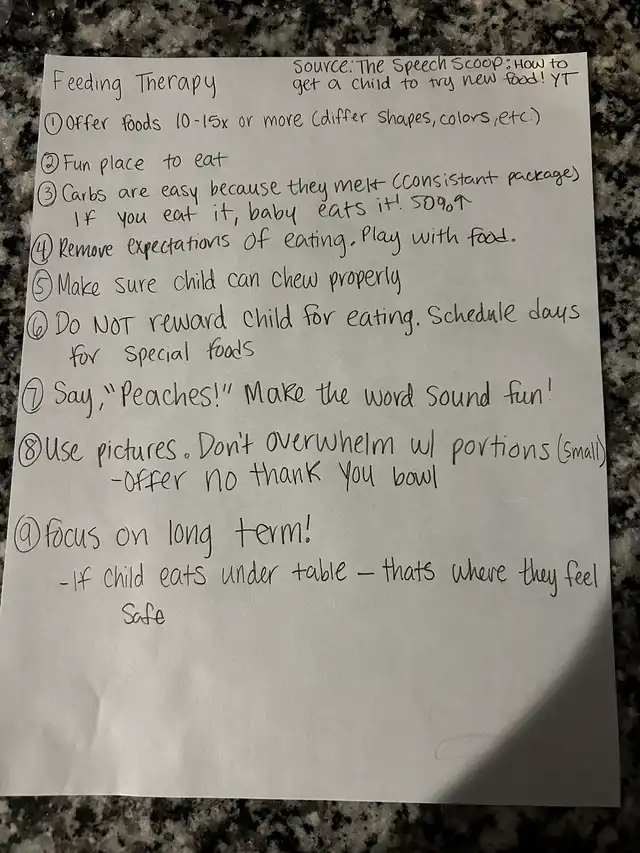 Feeding Therapy
Source: The Speech Scoop: How to
get a child to try new food! YT
① Offer foods 10-15x or more (differ shapes, colors, etc.)
② Fun place to eat
③ Carbs are easy because they melt (consistant package)
If you eat it, baby eats it! 50%↑
④ Remove expectations of eating. Play with food.
⑤ Make sure child can chew properly
⑥ Do NOT reward child for eating. Schedule days
for special foods
⑦ Say, "Peaches!" Make the word sound fun!
⑧ Use pictures. Don't overwhelm w/ portions (small)
-Offer no thank you bowl
⑨ Focus on long term!
-If child eats under table - thats where they feel
safe